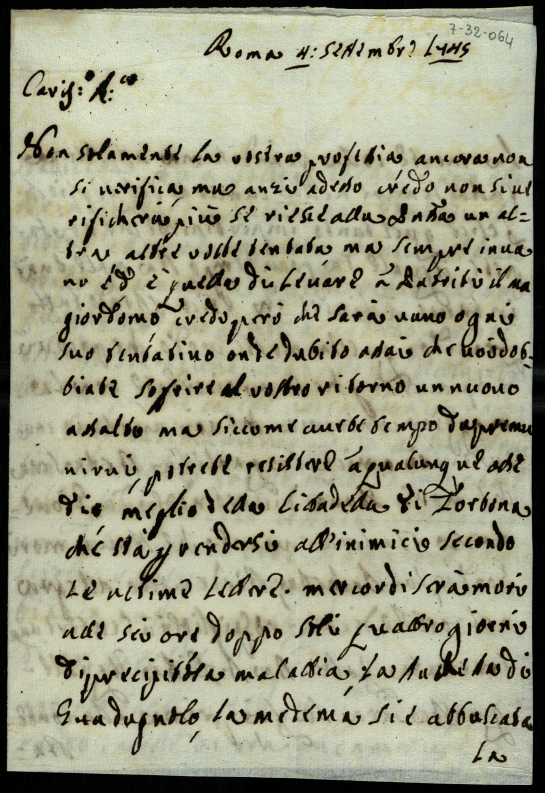 7-32-064
Roma 4: Settembre 1745
Cariss:o A:co
Non solamente la vostra profetia ancora non
si verifica, ma anzi adesso credo non si ve
rifichera più se riesce alla
tra altre volte tentata ma sempre inva
no ed è quella di levare à il ma
giordomo credo però che sarà vano ogni
suo tentativo onde dubito assai che voi dob-
biate soffrire al vostro ritorno un nuovo
assalto ma siccome avete tempo da premu
nirvi, potrete resistere à qualunque asse
dio meglio della Cittadella di Tortona
che stà p rendersi all'inimico secondo
le ultime lettere. mercordi sera morì
alle sei ore doppo soli quattro giorni
di precipitosa malattia, la Duchessa di
Guadagnolo, la medema si è abbuscata
la